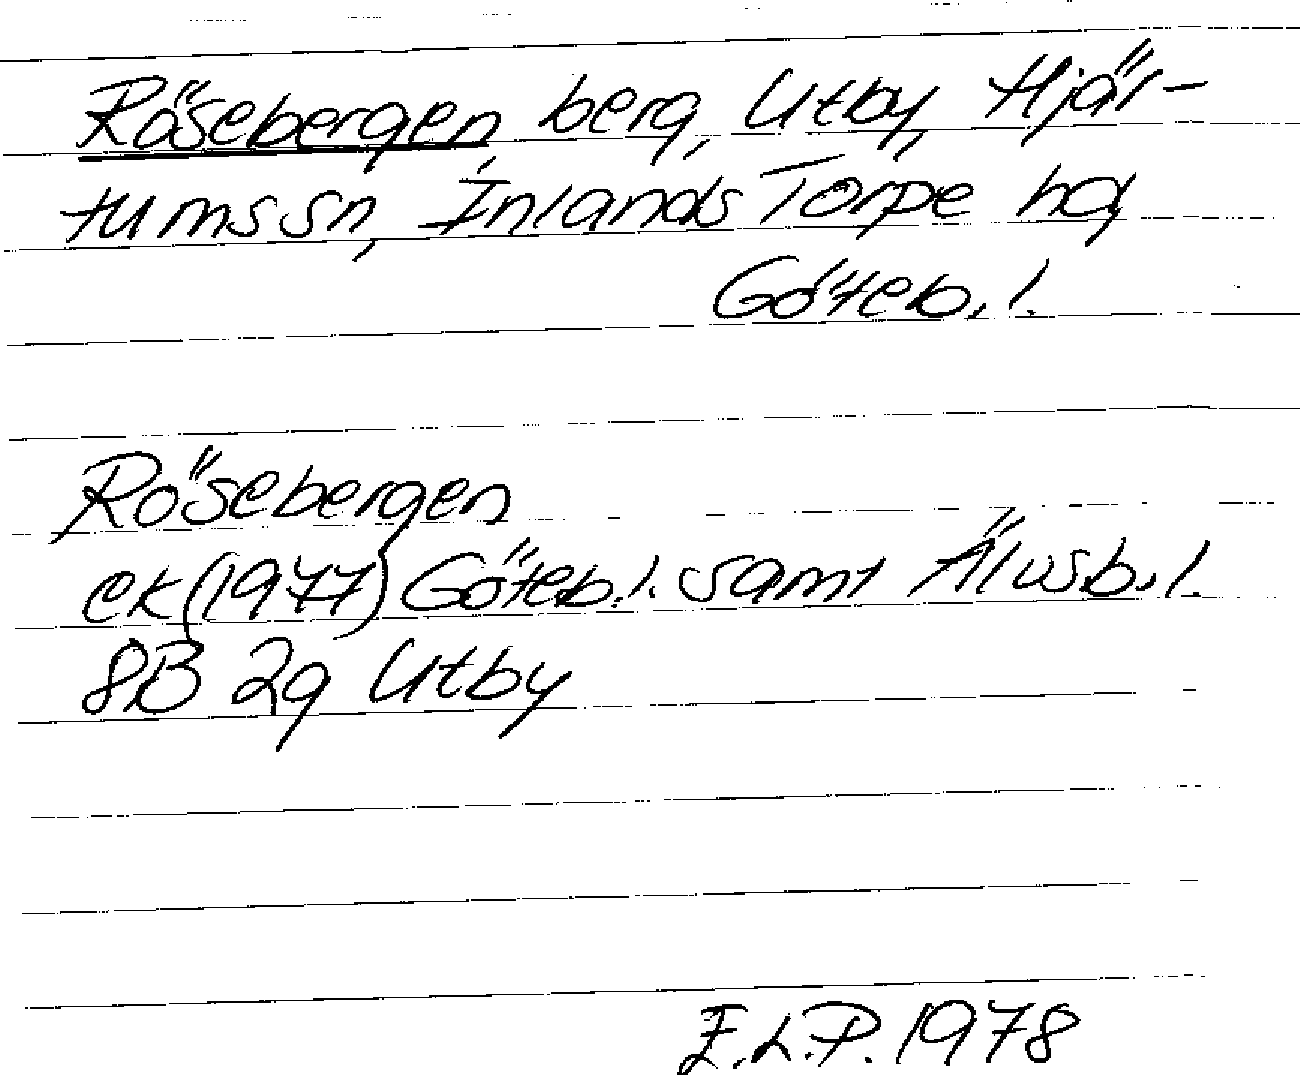 Rösebergen berg, Utby, Hjär-
tums sn, Inlands Torpe hd,
Göteb. l.
Rösebergen
ek (1977) Göteb. l. samt Älvsb. l.
8B 2g Utby
E.L.P. 1978